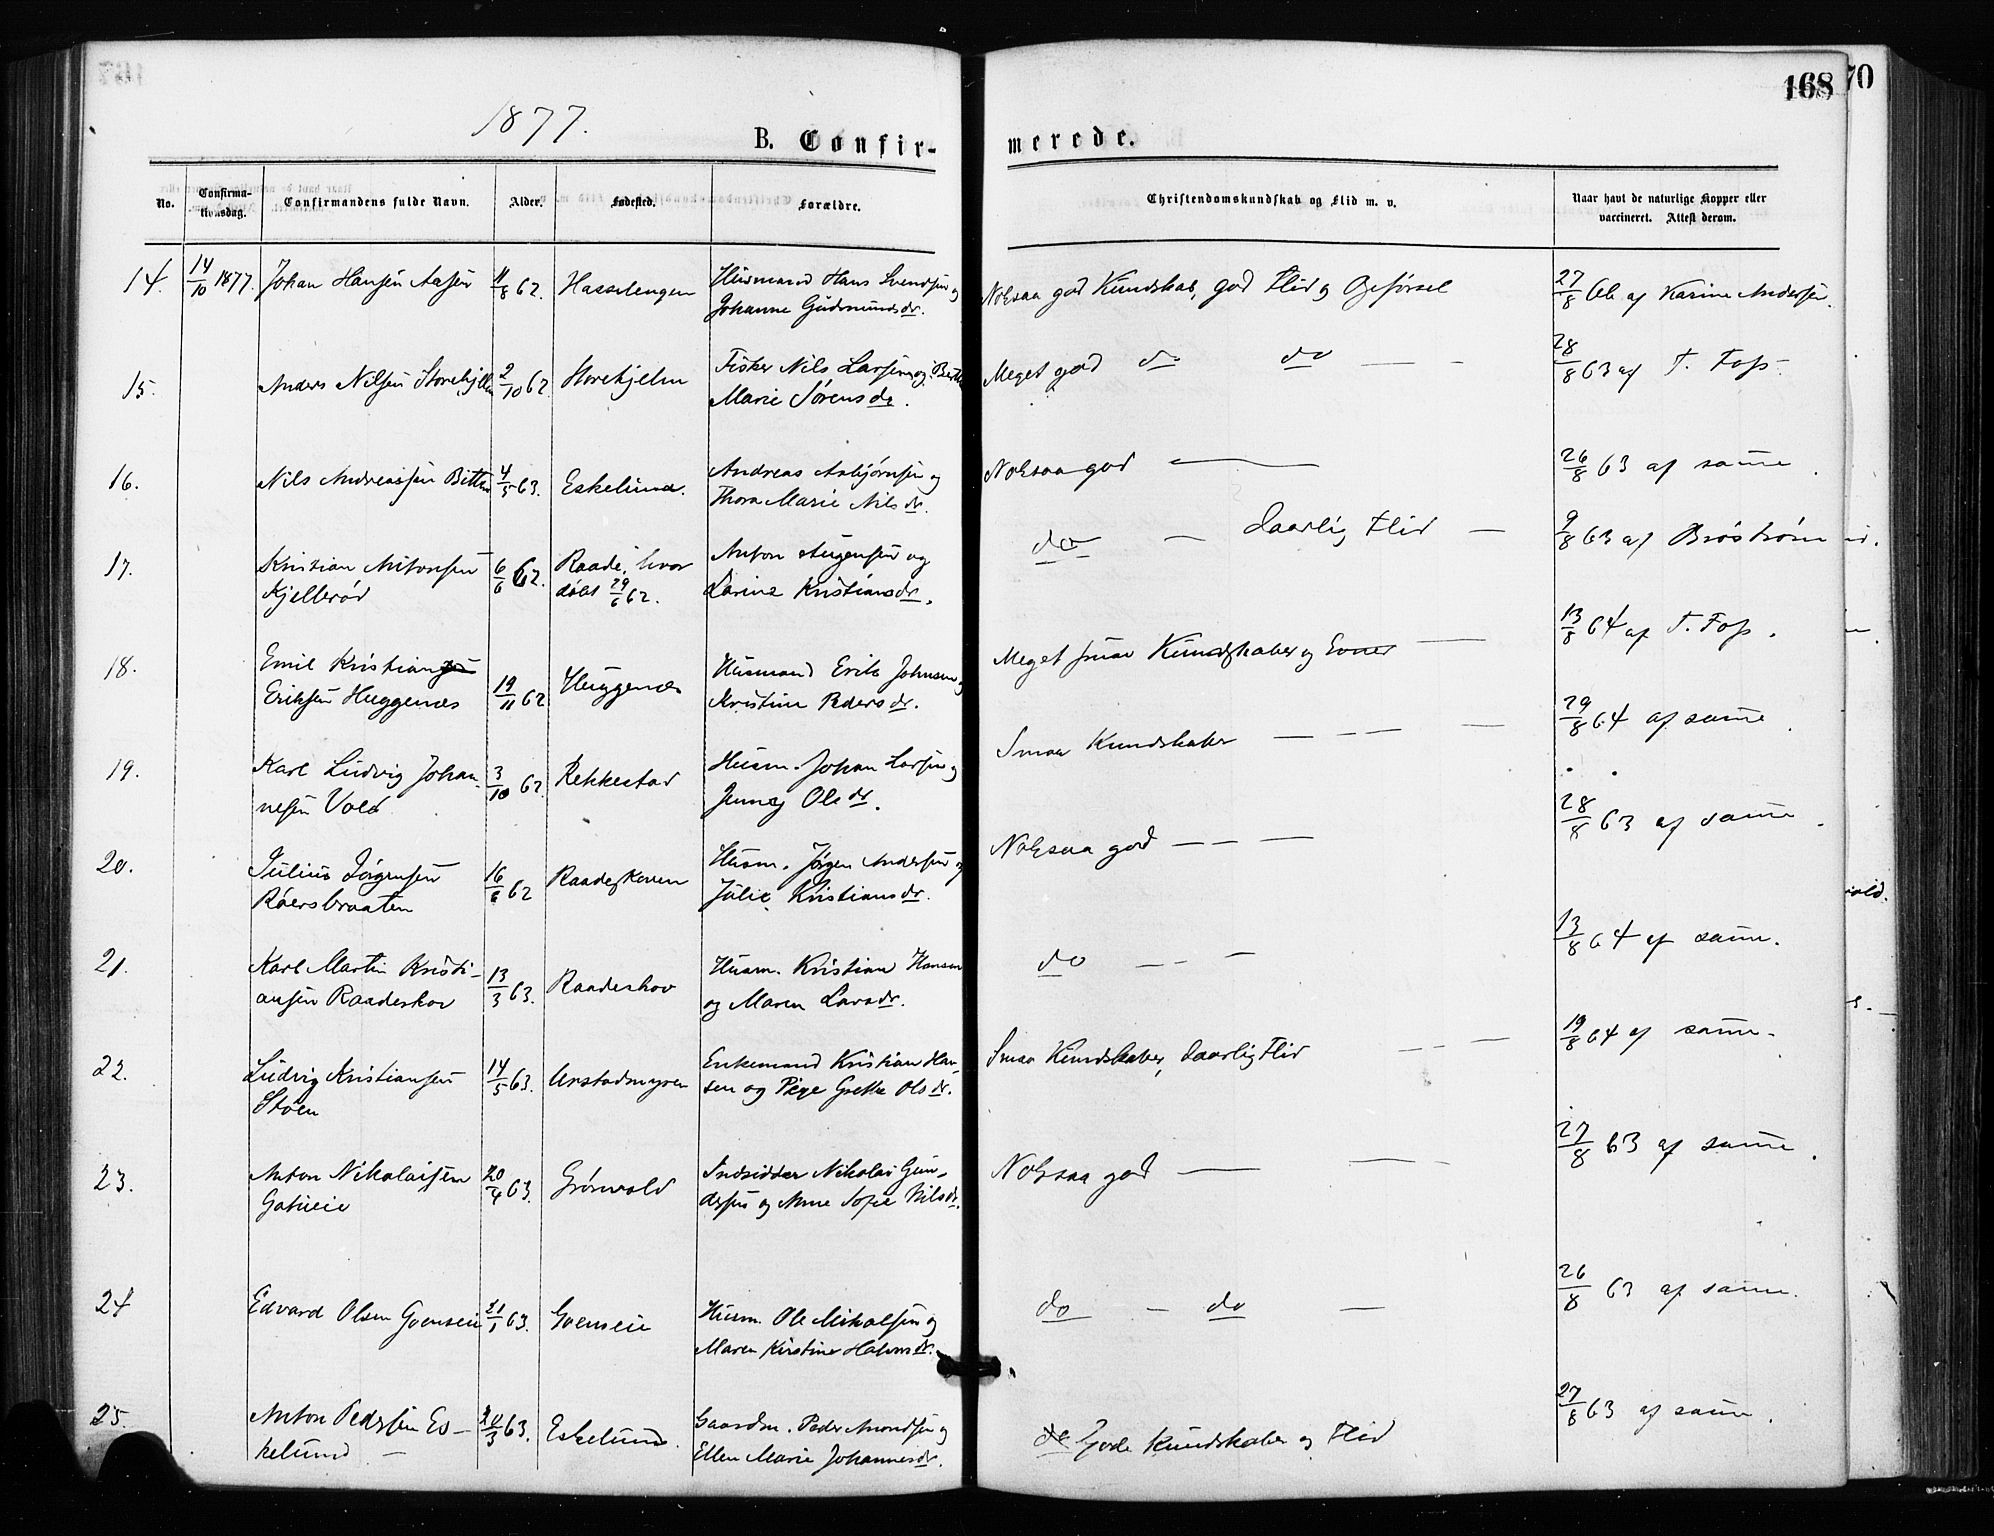 168
70
1877.
B. Confir-
merede.
No.
Confirma-
tionsdag.
Confirmandens fulde Navn.
Alder.
Fødested.
Forældre.
Christendomskundskab og Flid m. v.
Naar havt de naturlige Kopper eller
vaccineret. Attest derom.
14. 14/10 1877. Johan Hansen Aasen 11/8 62. Hasselengen Husmand Hans Svendsen og
Johanne Gudmundsdr.
Noksaa god Kundskab, god Flid og Opførsel 27/8 66 af Karine Andersen.
15. Anders Nilsen Storehjellen 2/10 62. Storehjelm Fisker Nils Larsen og Berthe
Marie Sørensdr.
Meget god do do — - 28/8 63 af T. Foss.
16. Nils Andreassen Bitten 4/5 63. Eskelund. Andreas Asbjørnsen og
Thora Marie Nilsdr.
Noksaa god — 26/8 63 af samme.
17. Kristian Antonsen
Kjellerød 6/6 62. Raade, hvor
døbt 29/6 62. Anton Augensen og
Larine Kristiansdr.
do — daarlig Flid — 9/8 63 af Brøstrøm
18. Emil Kristian
Eriksen Huggenæs 19/11 62 Huggenæs Husmand Erik Johnsen og
Kristine Pedersdr.
Meget smaa Kundskaber og Evner — 13/8 64 af T. Foss.
19. Karl Ludvig Johan-
nesen Vold 3/10 62. Rekkestad Husm. Johan Larsen og
Jenny Olsdr.
Smaa Kundskaber — - — — 29/8 64 af samme.
20. Julius Jørgensen
Røersbraaten 16/6 62 Raadeskoven Husm. Jørgen Andersen og
Julie Kristiansdr.
Noksaa god — — — 28/8 63 af samme.
21. Karl Martin Kristi-
ansen Raadeskov 13/3 63. Raadeskov Husm. Kristian Hansen
og Maren Larsdr.
do — - — 13/8 64 af samme.
22. Ludvig Kristiansen
Støen 14/5 63. Unstadmyren Enkemand Kristian Han-
sen og Pige Grethe Olsdr.
Smaa Kundskaber, daarlig Flid — - — 19/8 64 af samme.
23. Anton Nikolaisen
20/4 63. Grønvold Indsidder Nikolai Gun-
dersen og Anne Sofie Nilsdr.
Noksaa god — — - 27/8 63 af samme.
24 Edvard Olsen Goenseie 21/1 63. Goenseie Husm. Ole Mikalsen og
Maren Kirstine Hansdr.
do — do — 26/8 63 af samme.
25. Anton Pedersen Es-
kelund — 24/3 63. Eskelund. Gaardm. Peder Amundsen og
Ellen Marie Johannesdr.
do Gode Kundskaber og Flid 27/8 63 af samme.